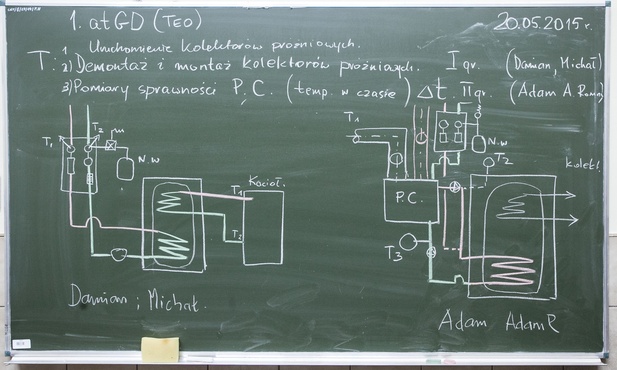 1. atGD (TEO) 20.05.2015r.
T: 1 Uruchomienie kolektorów próżniowych.
2) Demontaż i montaż kolektorów próżniowych. I gr. (Damian, Michał)
3) Pomiary sprawności P.C. (temp. w czasie) Δt II gr. (Adam A
T1
T2
N.W
T1
Kocioł.
T1
T2
N.W
T2
kolekt.
P.C.
T3
Damian i Michał.
Adam Adam P